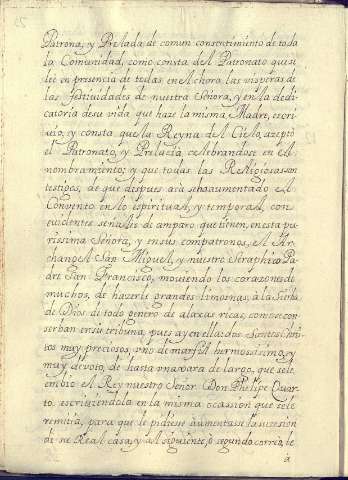 Patrona, y Prelada de comun consentimiento de toda
la Comunidad, como consta del Patronato que se
lee en presencia de todas en el choro, las visperas de
las festiuidades de nuestra Señora, y en la dedi
catoria de su vida que haze la misma Madre, escri
uio, y consta que la Reyna del Cielo, azeptó
el Patronato, y Prelacia, celebrandose en el
nombramiento; y que todas las Religiosas son
testigos, de que despues acá se ha aumentado el
Conuento en lo espiritual, y temporal, con
euidentes señales de amparo que tienen, en esta pu
rissima Señora, y en sus compatronos, el Ar
changel San Miguel, y nuestro Seraphico Pa
dre San Francisco, mouiendo los corazones de
muchos, de hazerle grandes limosnas, a la Sierba
de Dios de todo genero de alaxas ricas, como se con
serban en su tribuna, pues ay en ella dos Santos Chris
tos muy preciosos, uno de marfil hermosissimo, y
muy deuoto, de hasta una bara de largo, que se le
embio el Rey nuestro Señor Don Phelipe Quar
to, escriuiendola en la misma ocassion que se le
remitia, para que le pidiese aumentase la sucesion
de su Real casa, y al siguiente, ò segundo correo, le
a